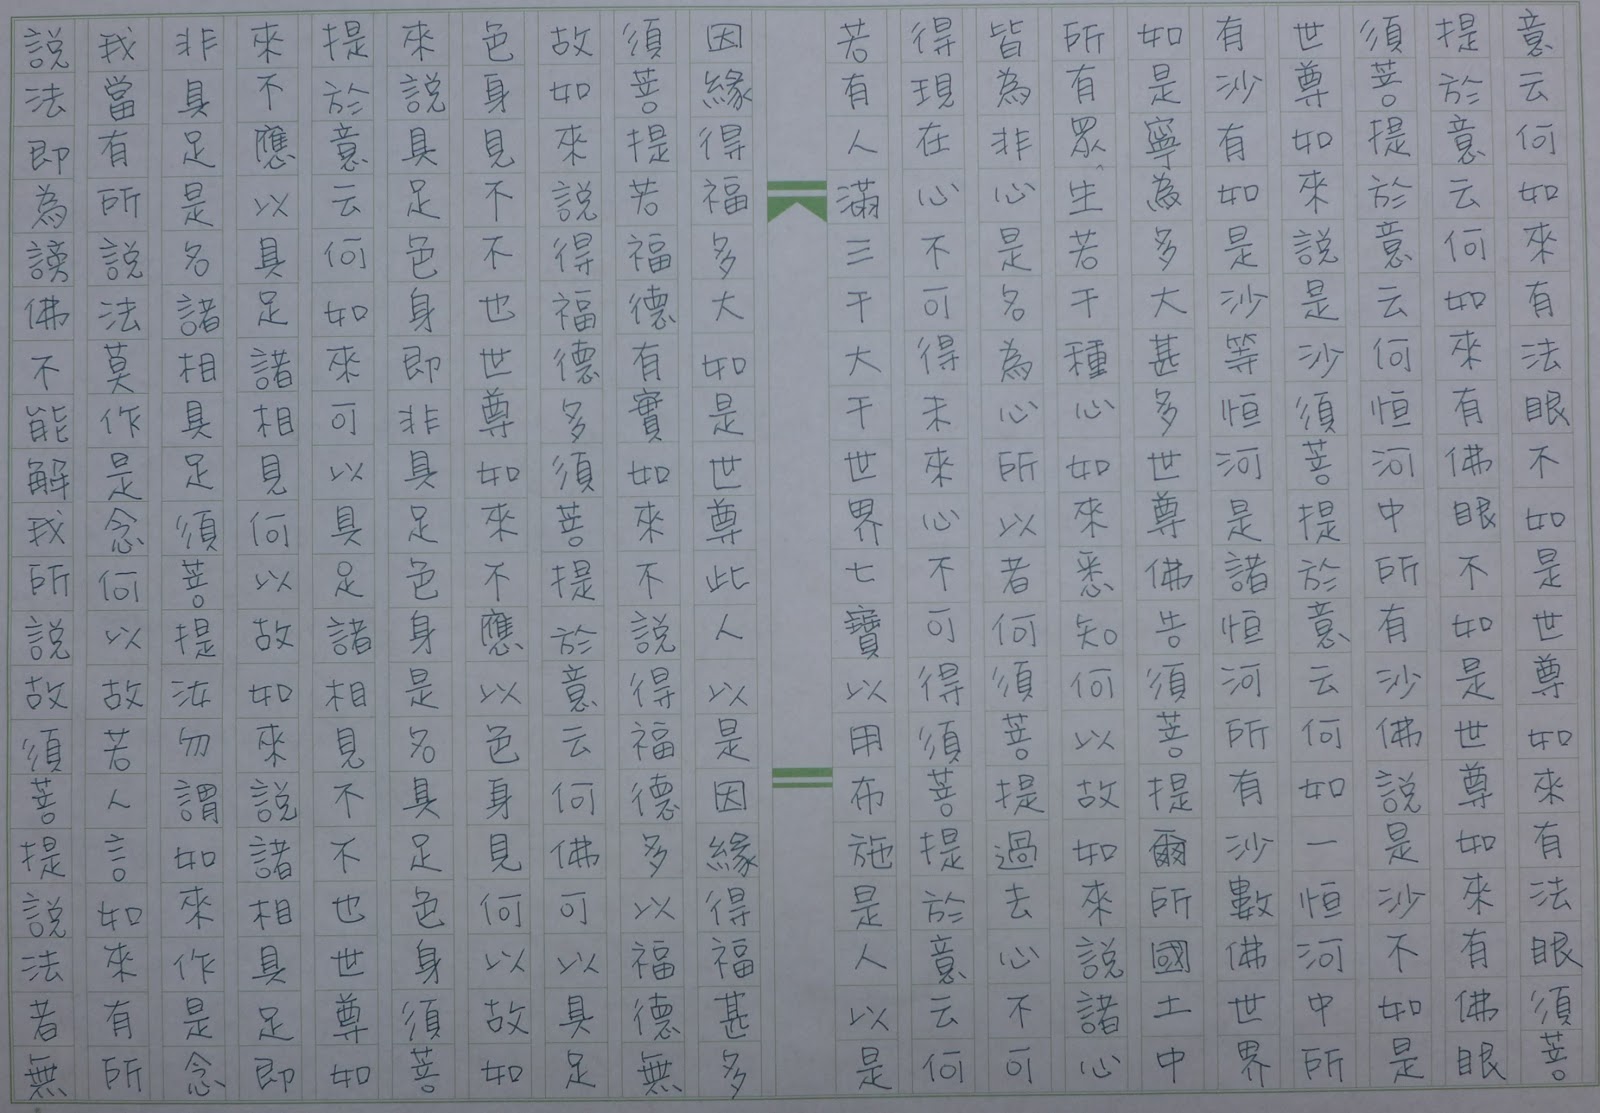 意云何如來有法眼不如是世尊如來有法眼須菩
提於意云何如來有佛眼不如是世尊如來有佛眼
須菩提於意云何恒河中所有沙佛說是沙不如是
世尊如來說是沙須菩提於意云何如一恒河中所
有沙有如是沙等恒河是諸恒河所有沙數佛世界
如是寧為多大甚多世尊佛告須菩提爾所國土中
所有眾生若干種心如來悉知何以故如來說諸心
皆為非心是名為心所以者何須菩提過去心不可
得現在心不可得未來心不可得須菩提於意云何
若有人滿三千大千世界七寶以用布施是人以是
因緣得福多大如是世尊此人以是因緣得福甚多
須菩提若福德有實如來不說得福德多以福德無
故如來說得福德多須菩提於意云何佛可以具足
色身見不不也世尊如來不應以色身見何以故如
來說具足色身即非具足色身是名具足色身須菩
提於意云何如來可以具足諸相見不不也世尊如
來不應以具足諸相見何以故如來說諸相具足即
非具足是名諸相具足須菩提汝勿謂如來作是念
我當有所說法莫作是念何以故若人言如來有所
說法即為謗佛不能解我所說故須菩提說法者無